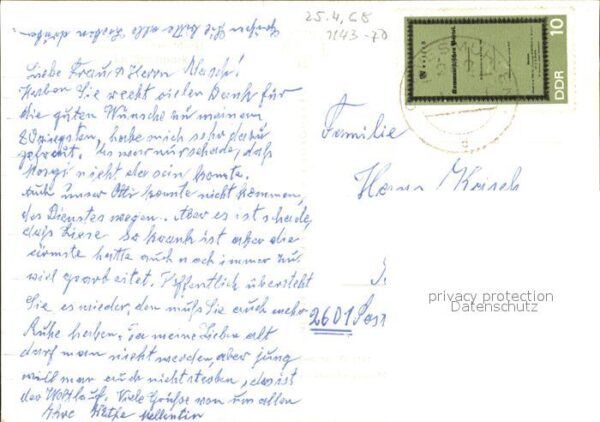 25.4.68
1143-70
Grüßen Sie bitte alle Lieben
Liebe Frau u Herrn
Haben Sie recht vielen Dank für
die guten Wünsche zu meinem
habe mich sehr dazu
gefreut. Es war nur schade, daß
nicht da sein konnte.
Auch unser Otti konnte nicht kommen,
des Dienstes wegen. Aber es ist schade,
daß Liese so krank ist aber die
ärmste hatte auch noch immer zu
viel gearbeitet. Hoffentlich übersteht
Sie es wieder, den muß Sie auch mehr
Ruhe haben. Ja meine Lieben alt
darf man nicht werden, aber jung
will man auch nicht sterben, das ist
der Weltlauf. Viele Grüße von uns allen
Ihre Käthe
Familie
Herrn
2601
DDR
10
Manifest
Kommunistischen Partei.
privacy protection
Datenschutz